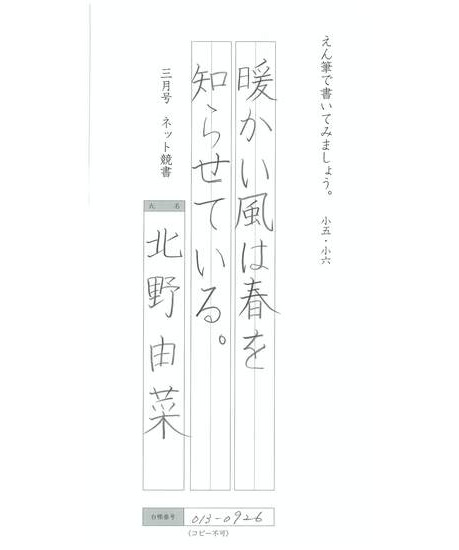 えん筆で書いてみましょう。 小五・小六
暖かい風は春を
知らせている。
三月号 ネット競書
氏 名
北野由菜
台帳番号
013-0926
(コピー不可)